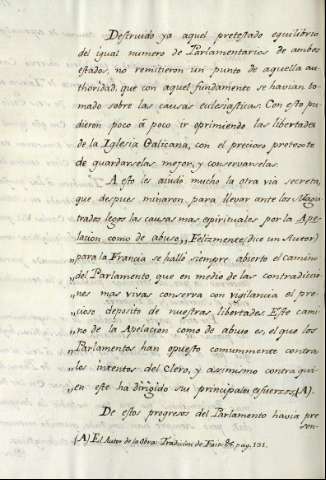 Destruido ya aquel pretestado equilibrio
del igual numero de Parlamentarios de ambos
estados, no remitieron un punto de aquella au-
thoridad, que con aquel fundamento se havian to-
mado sobre las causas eclesiasticas. Con esto pu-
dieron poco á poco ir oprimiendo las libertades
de la Iglesia Galicana, con el precioso pretexto
de guardarselas mejor, y conservarselas.
A esto les aiudó mucho la otra via secreta,
que despues minaron para llevar ante los Magis-
trados legos las causas mas espirituales por la Ape-
lacion como de abuso. „Felizmente (dice un Autor)
„para la Francia se halló siempre abierto el camino
„del Parlamento, que en medio de las contradiccio-
„nes mas vivas conserva con vigilancia el pre-
„cioso deposito de nuestras libertades. Este cami-
„no de la Apelacion como de abuso es, el que los
„Parlamentos han opuesto comunmente contra
„los intentos del Clero, y asimismo contra qui-
„en este ha dirigido sus principales esfuerzos (A).
De estos progresos del Parlamento havia pre-
sen-
(A) El Autor de la Obra: Tradicion de Fair. &c. pag. 131.